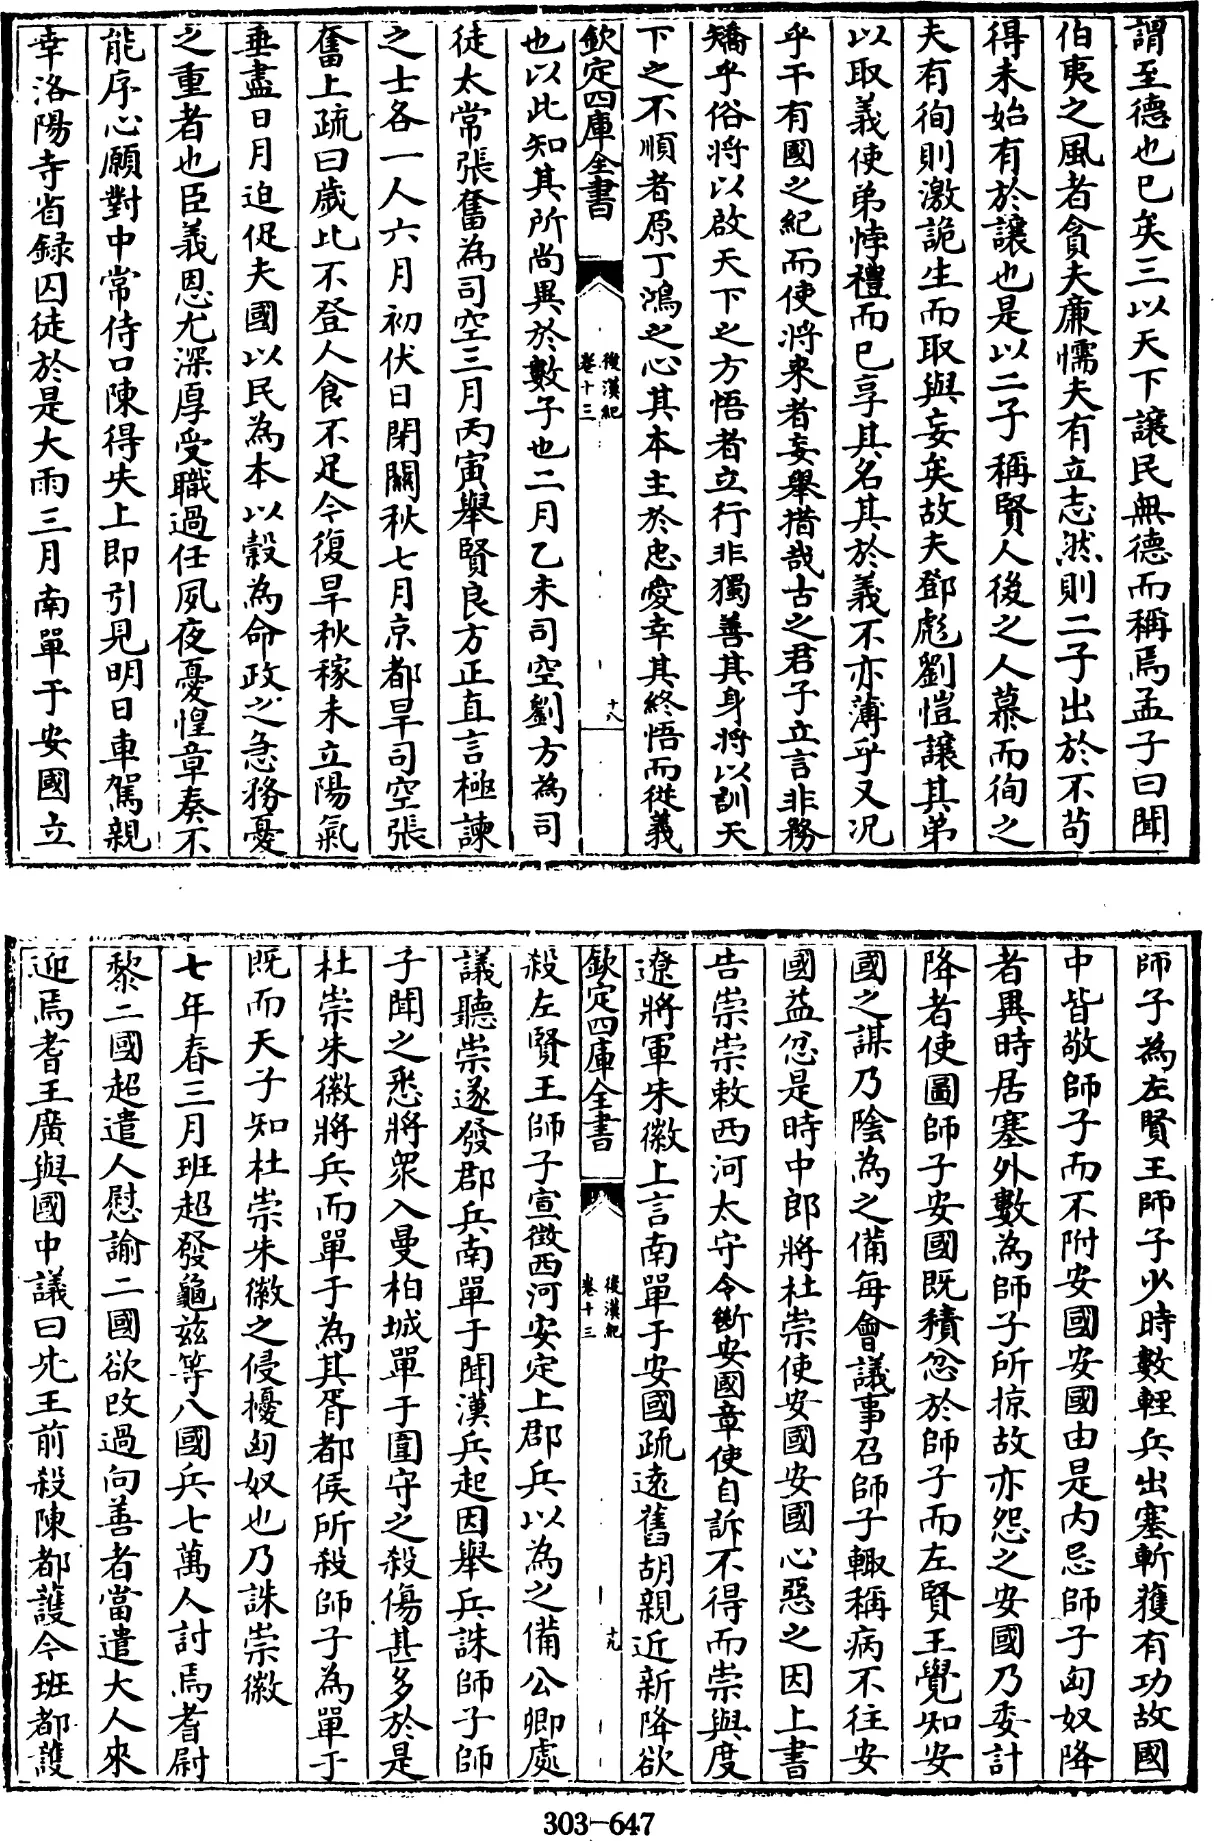 謂至德也已矣三以天下讓民無德而稱焉孟子曰聞
伯夷之風者貪夫廉懦夫有立志然則二子出於不茍
得未始有於讓也是以二子稱賢人後之人慕而徇之
夫有徇則激詭生而取與妄矣故夫鄧彪劉愷讓其弟
以取義使弟悖禮而已享其名其於義不亦薄乎又况
乎干有國之紀而使將來者妄舉措哉古之君子立言非務
矯乎俗將以啟天下之方悟者立行非獨善其身將以訓天
下之不順者原丁鴻之心其本主於忠愛幸其終悟而從義
欽定四庫全書
後漢紀
卷十三
十八
也以此知其所尚異於數子也二月乙未司空劉方為司
徒太常張奮為司空三月丙寅舉賢良方正直言極諫
之士各一人六月初伏日閉關秋七月京都旱司空張
奮上疏曰歲比不登人食不足今復旱秋稼未立陽氣
垂盡日月迫促夫國以民為本以穀為命政之急務憂
之重者也臣義恩尤深厚受職過任夙夜憂惶章奏不
能序心願對中常侍口陳得失上即引見明日車駕親
幸洛陽寺省録囚徒於是大雨三月南單于安國立
師子為左賢王師子少時數輕兵出塞斬獲有功故國
中皆敬師子而不附安國安國由是内忌師子匈奴降
者異時居塞外數為師子所掠故亦怨之安國乃委計
降者使圖師子安國既積忿於師子而左賢王覺知安
國之謀乃陰為之備每會議事召師子輒稱病不往安
國益忿是時中郎將杜崇使安國安國心惡之因上書
告崇崇敕西河太守令斷安國章使自訴不得而崇與度
遼將軍朱徽上言南單于安國疏逺舊胡親近新降欲
欽定四庫全書
後漢紀
卷十三
十九
殺左賢王師子宣徴西河安定上郡兵以為之備公卿處
議聽崇遂發郡兵南單于聞漢兵起因舉兵誅師子師
子聞之悉將衆入曼柏城單于圍守之殺傷甚多於是
杜崇朱徽將兵而單于為其胥都侯所殺師子為單于
既而天子知杜崇朱徽之侵擾匈奴也乃誅崇徽
七年春三月班超發龜兹等八國兵七萬人討焉耆尉
黎二國超遣人慰諭二國欲改過向善者當遣大人來
迎焉耆王廣與國中議曰先王前殺陳都護今班都護
303-647